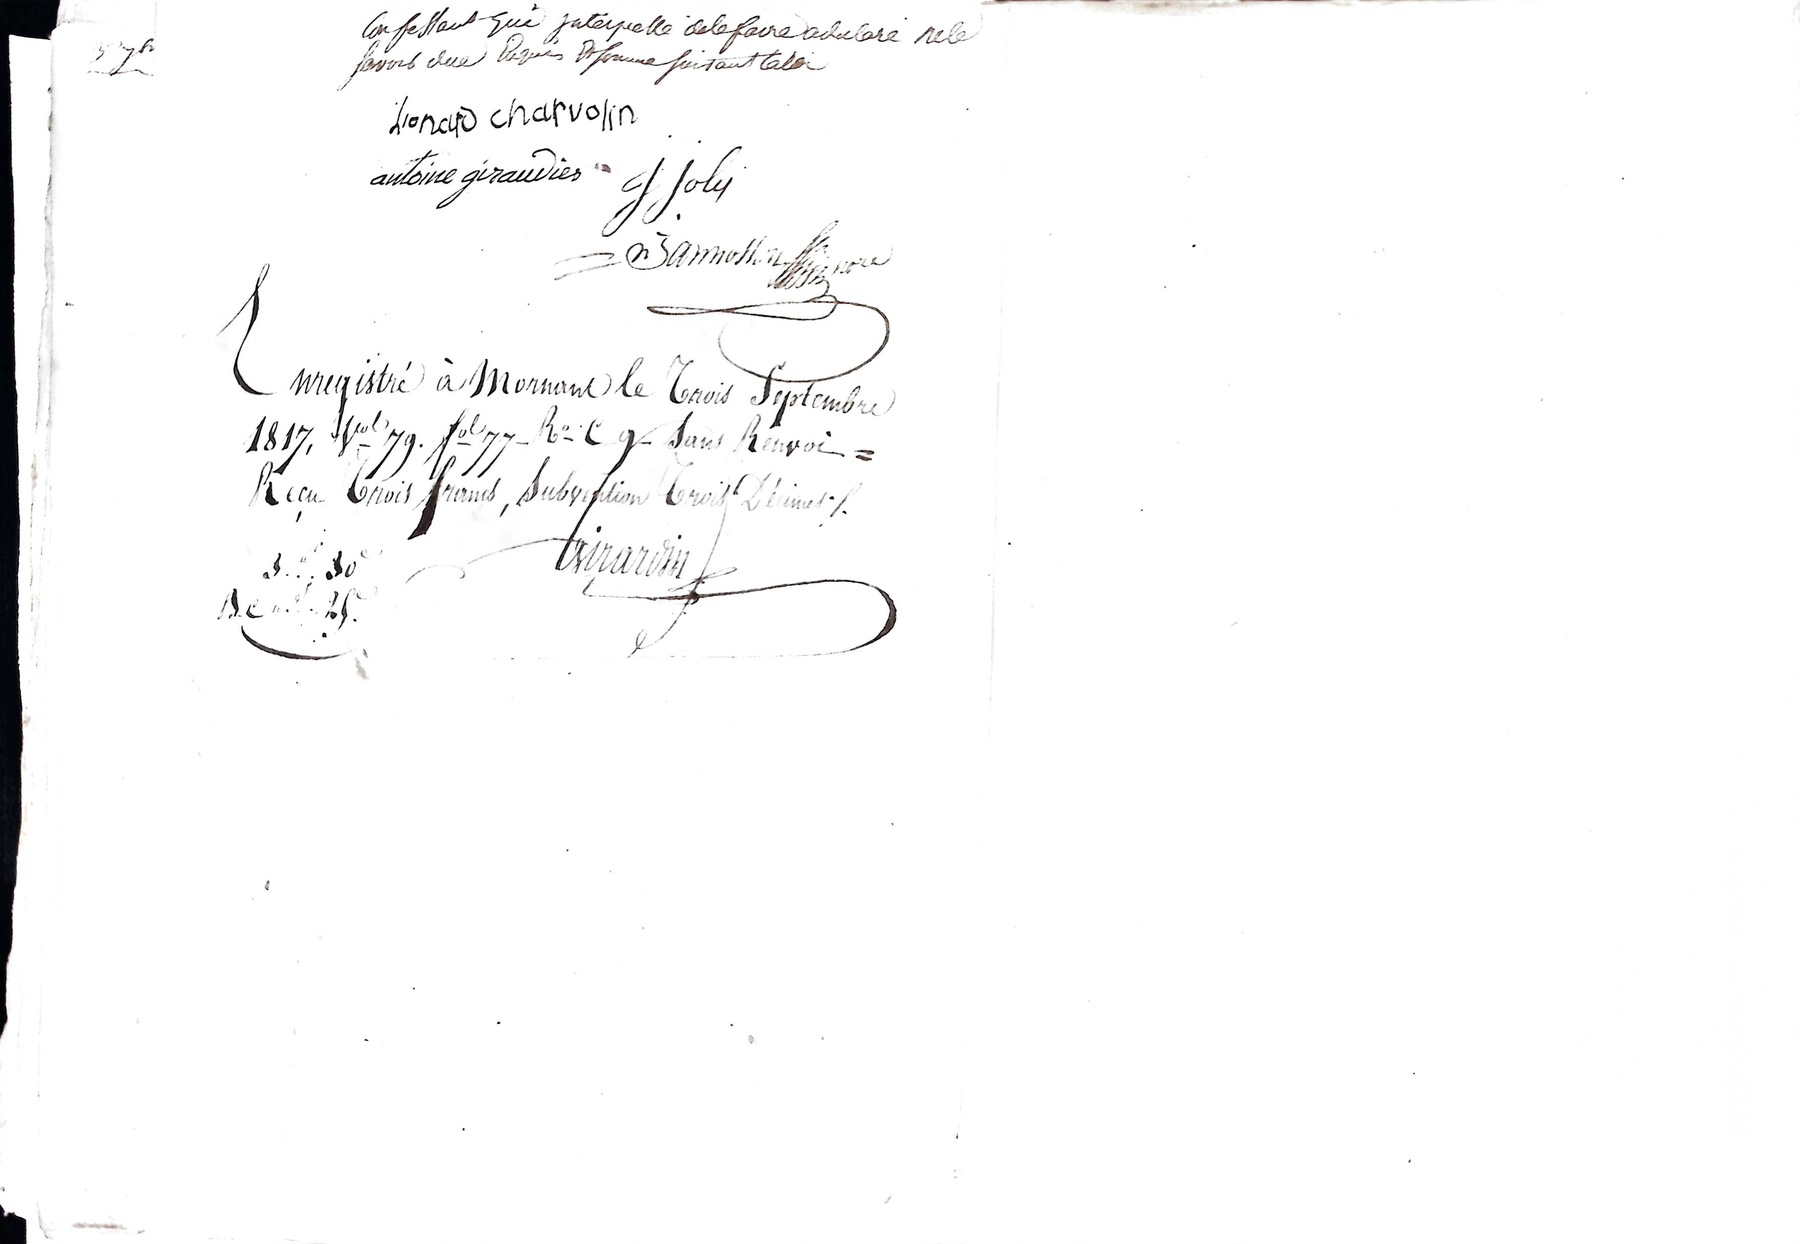 Confessant qui interpellé de le faire a declaré ne le
savoir due requis & somme suivant la loi
Lionard charvolin
antoine giraudier
J Joly
Enregistré à Mornant le Trois Septembre
1817, Vol 79. fol 77 Ro C 9 Sans Renvoi =
Reçu Trois francs, Subvention Trois Décimes
Girardin
3 f. 30 c
25